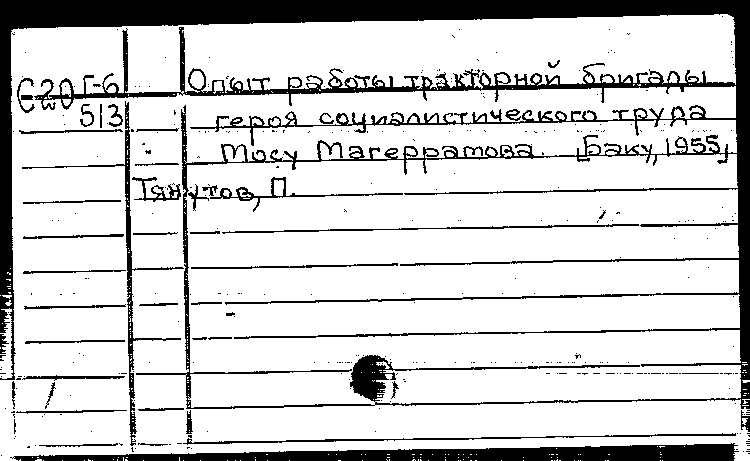 Е20 Г-6 Опыт работы тракторной бригады
513 героя социалистического труда
Мосу Магеррамова. [Баку, 1955]
Тянутов, П.